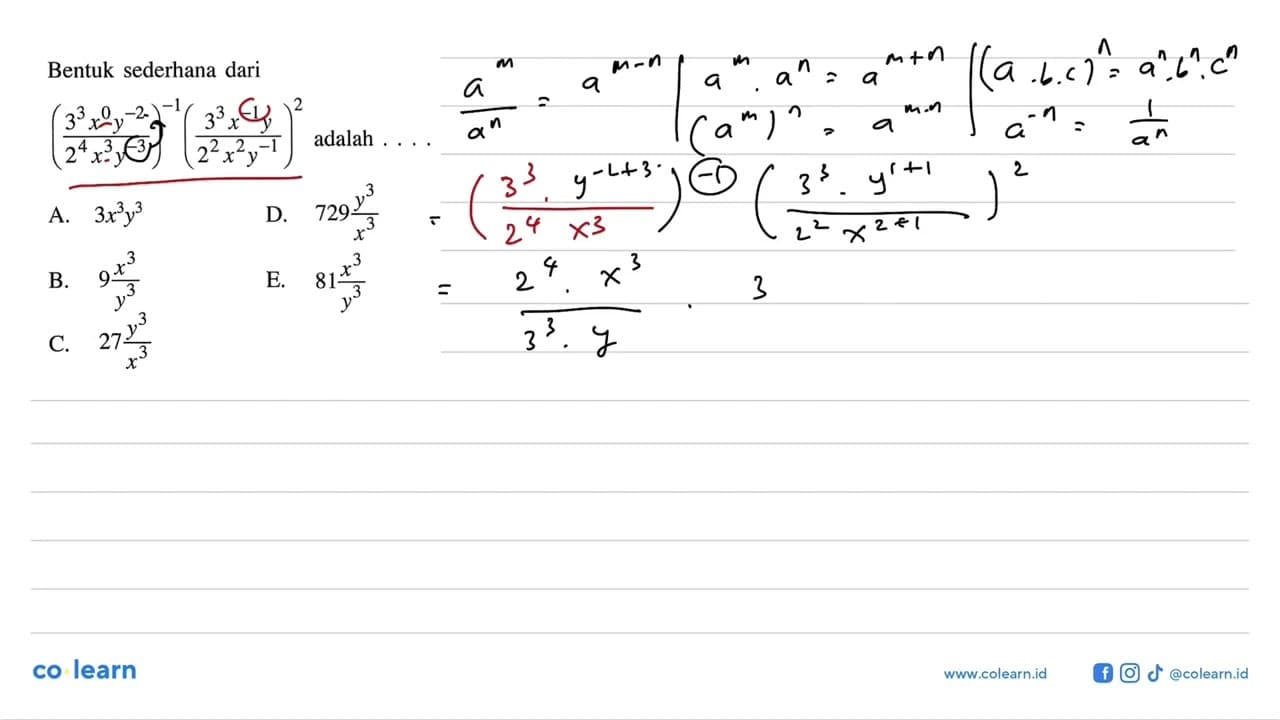 Bentuk sederhana dari
(3³x⁰y⁻²/2⁴x³y⁻³)⁻¹ (3³x⁻¹y/2²x²y⁻¹)² adalah . . . .
A. 3x³y³
B. 9 x³/y³
C. 27 y³/x³
D. 729 y³/x³
E. 81 x³/y³
aᵐ/aⁿ = aᵐ⁻ⁿ | aᵐ . aⁿ = aᵐ⁺ⁿ | (a . b . c)ⁿ = aⁿ . bⁿ . cⁿ
(aᵐ)ⁿ = aᵐ·ⁿ | a⁻ⁿ = 1/aⁿ
= (3³ . y⁻²⁺³/2⁴ x³)⁻¹ (3³ . y¹⁺¹/2² x²⁺¹)²
= 2⁴ . x³/3³ . y . 3
co learn
www.colearn.id
@colearn.id